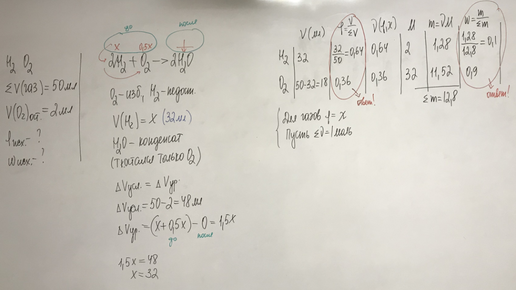 H₂ O₂
ΣV(газ) = 50 мл
V(O₂)ост = 2 мл
φисх. - ?
ωисх. - ?
до
после
x 0,5x
2H₂ + O₂ -> 2H₂O
O₂ - изб, H₂ - недост.
V(H₂) = x (32 мл)
H₂O - конденсат
(остался только O₂)
ΔVусл. = ΔVур.
ΔVусл. = 50 - 2 = 48 мл
ΔVур. = (x + 0,5x) - 0 = 1,5x
до после
1,5x = 48
x = 32
V(мл) φ = V/ΣV ν(φ,χ) M m = νM ω = m/Σm
H₂ 32 32/50 = 0,64 0,64 2 1,28 1,28/12,8 = 0,1
O₂ 50-32=18 0,36 0,36 32 11,52 0,9
ответ! Σm = 12,8 ответ!
Для газов φ = χ
Пусть Σν = 1 моль